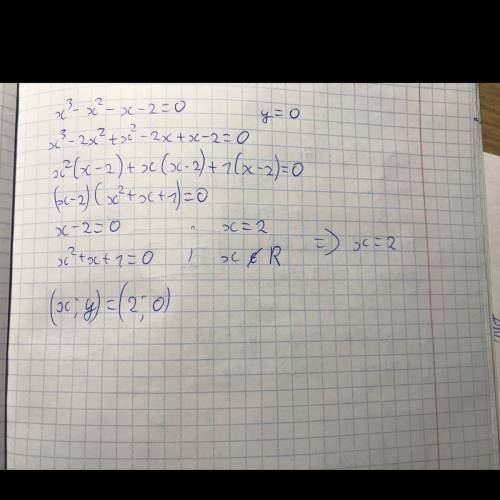 x³ - x² - x - 2 = 0 y = 0
x³ - 2x² + x² - 2x + x - 2 = 0
x²(x - 2) + x(x - 2) + 1(x - 2) = 0
(x - 2)(x² + x + 1) = 0
x - 2 = 0 x = 2
x² + x + 1 = 0 x ∉ R => x = 2
(x; y) = (2; 0)